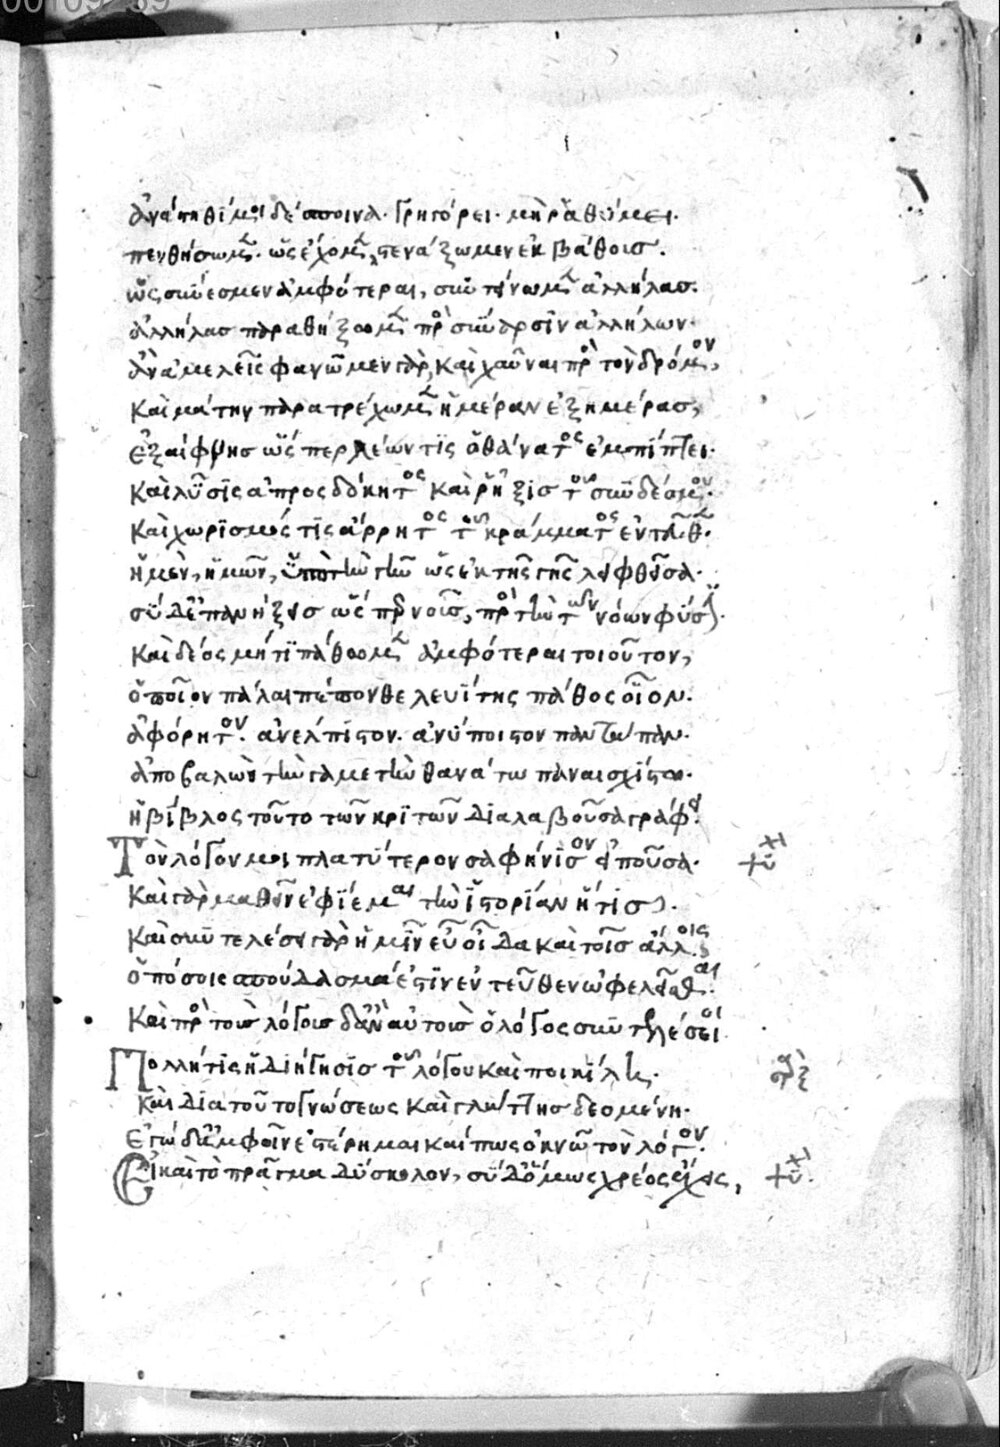 ἀνάστηθί μοι δέσποινα· γρηγόρει· μὴ ῥαθύμει·
πενθήσωμεν· ὡς ἔχομεν, στενάξωμεν ἐκ βάθους·
ὡς σύνεσμεν ἀμφότεραι, συντείνωμεν ἀλλήλας·
ἀλλήλας παραθήξωμεν πρὸς σύναρσιν ἀλλήλων·
ἂν ἀμελεῖς φανῶμεν γὰρ, καὶ χαῦναι πρὸς τὸν δρόμον,
καὶ μάτην παρατρέχωμεν ἡμέραν ἐξ ἡμέρας,
ἐξαίφνης ὥσπερ λέων τις ὁ θάνατος ἐμπίπτει·
καὶ λύσις ἀπροσδόκητος καὶ ῥῆξις τοῦ συνδέσμου·
καὶ χωρισμός τις ἄρρητος τοῦ κράμματος ἐνταῦθα·
ἡ μὲν, ἡμῶν, ὑπὸ τὴν γῆν ὡς ἐκ τῆς γῆς ληφθεῖσα·
σὺ δὲ πάλιν ἥξεις ὡς πρὶν νοῦς, πρὸς τὴν τῶν νόων φύσιν·
καὶ δέος μήτι πάθωμεν ἀμφότεραι τοιοῦτον,
ὁποῖον πάλαι πέπονθε λευίτης πάθος οἷον·
ἀφόρητον· ἀνέλπιστον· ἀνύποιστον παντάπαν·
ἀποβαλὼν τὴν γαμετὴν θανάτω παναισχίστω·
ἡ βίβλος τοῦτο τῶν κριτῶν διαλαβοῦσα γράφει·
Τὸν λόγον μοι πλατύτερον σαφήνισον εἰποῦσα· + ψυχ
καὶ γὰρ μαθεῖν ἐφίεμαι τὴν ἱστορίαν ἥτις·
καὶ συντελέσει γὰρ ἡμῖν εὖ οἶδα καὶ τοῖς ἄλλοις
ὁπόσοις σπούδασμά ἐστιν ἐντεῦθεν ὠφελεῖσθαι·
καὶ πρὸς τοὺς λόγους δ' ἂν αὐτοὺς ὁ λόγος συντελέσοι
Πολλή τις ἡ διήγησις τοῦ λόγου καὶ ποικίλη· σὰρξ
καὶ διὰ τοῦτο γνώσεως καὶ γλώττης δεομένη·
ἐγὼ δ' ἀμφοῖν ἐστέρημαι καί πως ὀκνῶ τὸν λόγον·
Εἰ καὶ τὸ πρᾶγμα δύσκολον, σὺ δ' ὅμως χρέος εἶχες, + ψυχ